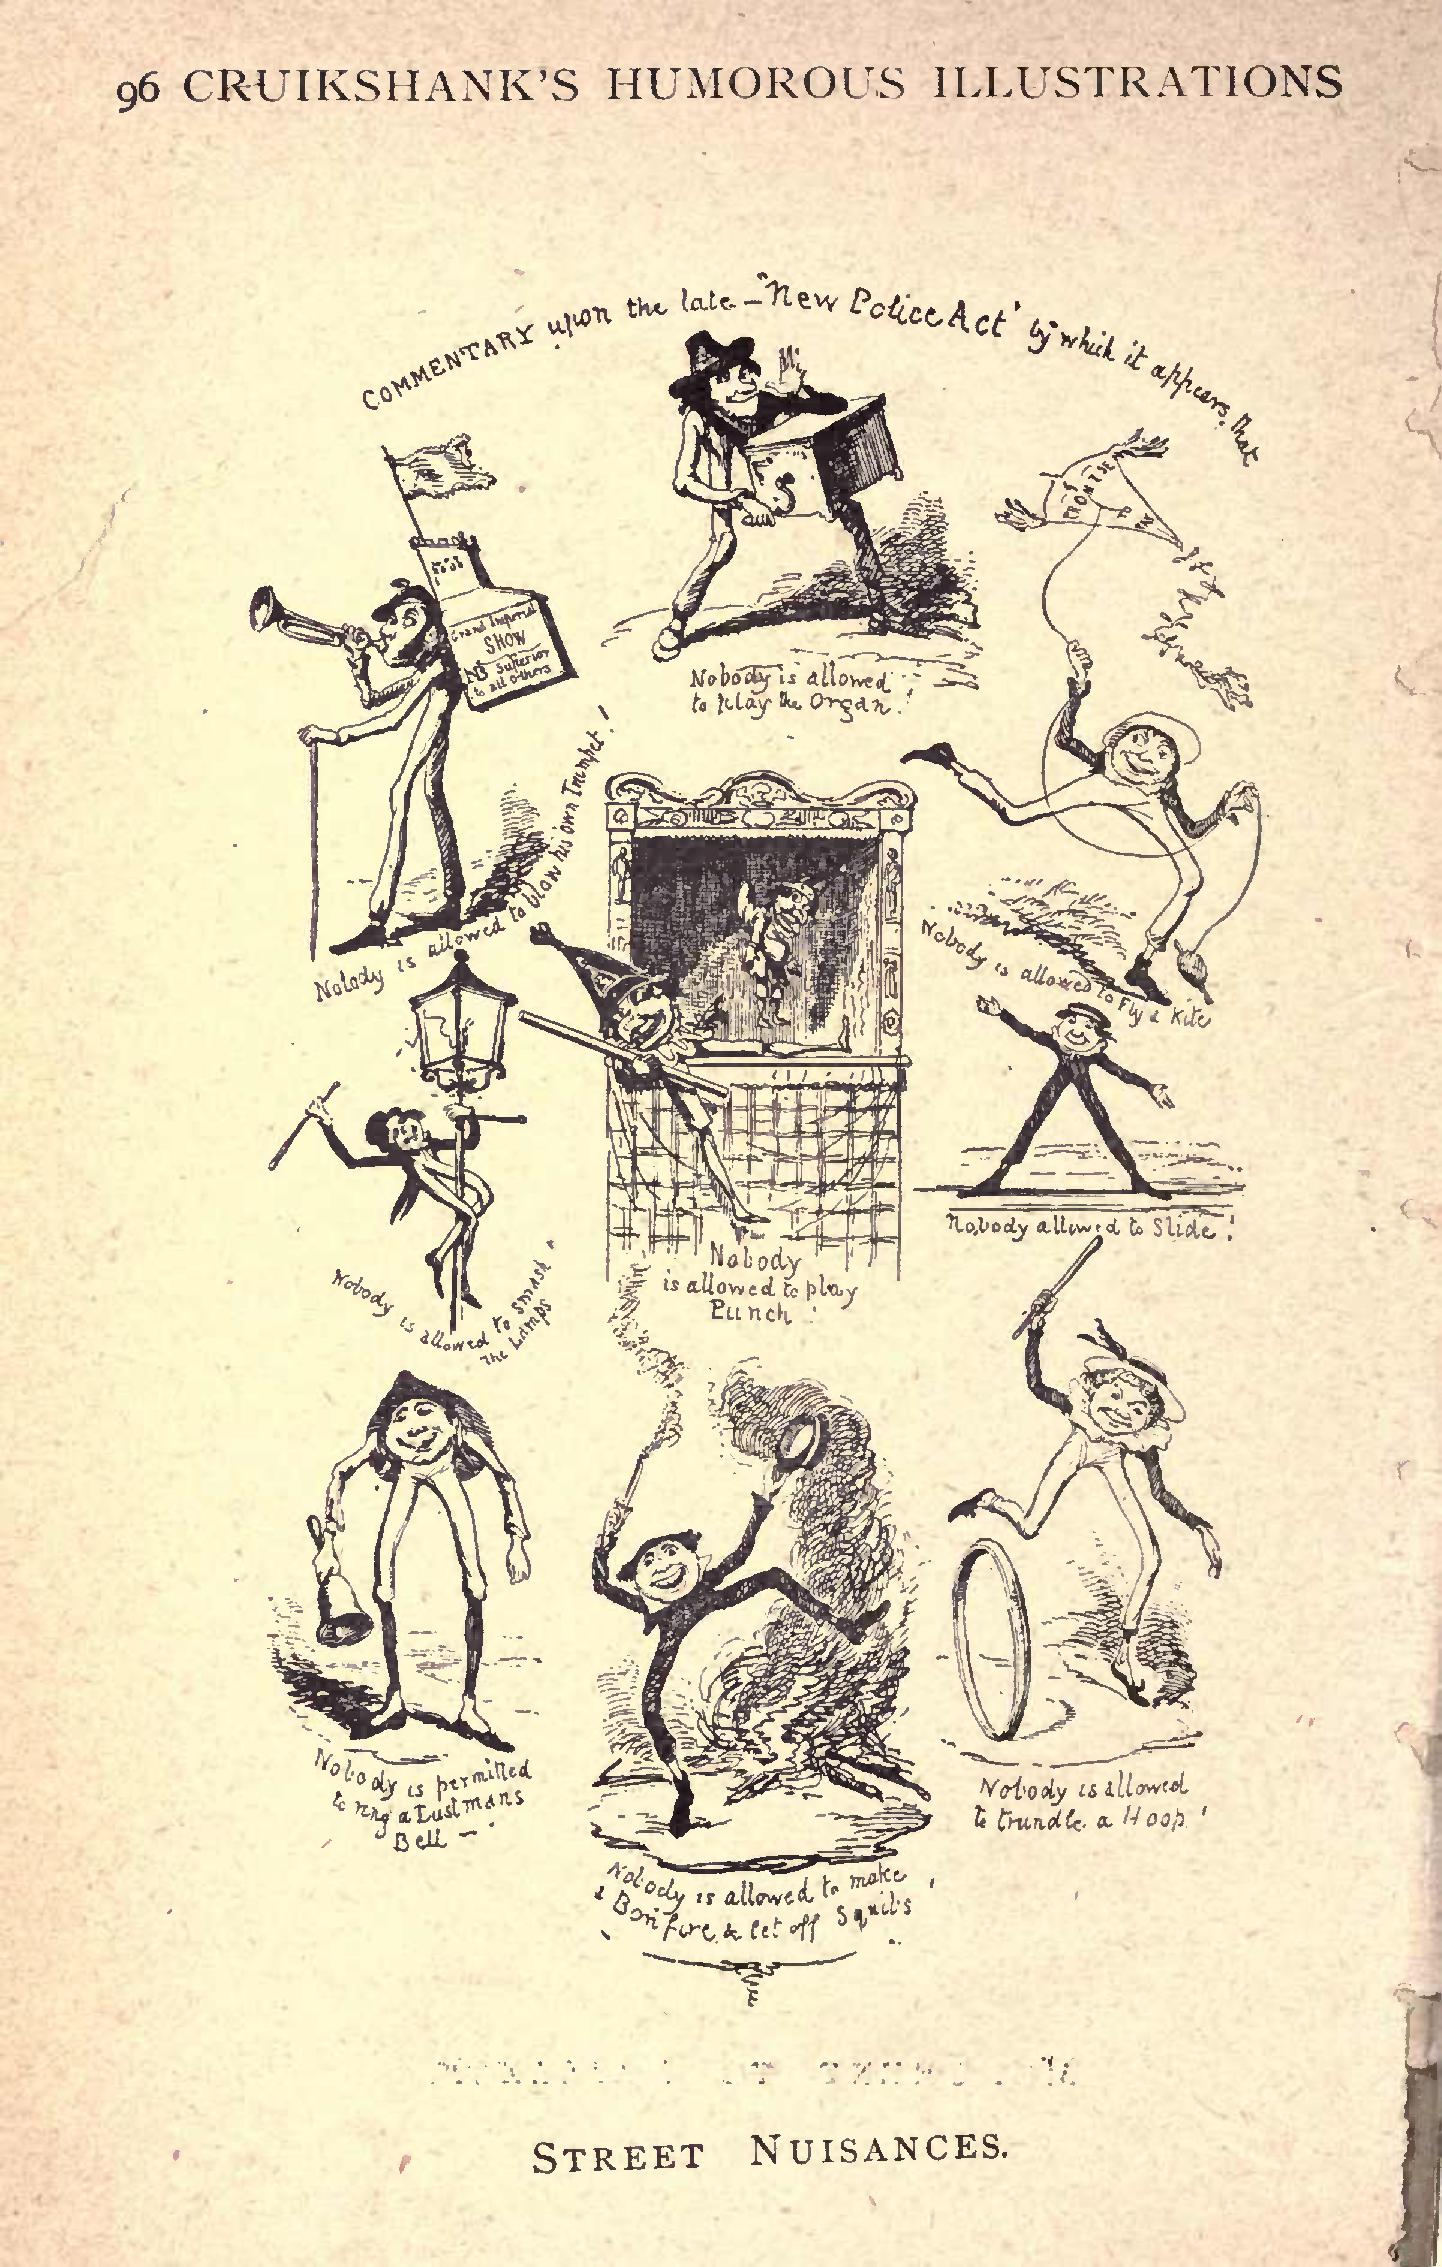 96 CRUIKSHANK'S HUMOROUS ILLUSTRATIONS
COMMENTARY upon the late—"New Police Act" by which it appears, that
Nobody is allowed
to play the Organ!
Grand Imperial
SHOW
Superior
to all others
Nobody is allowed to blow his own Trumpet!
Nobody is allowed to Fly a Kite
Nobody is allowed to smash
the Lamps
Nobody
is allowed to play
Punch!
Nobody allowed to Slide!
Nobody is permitted
to ring a Dustmans
Bell —
Nobody is allowed to make
a Bonfire & let off Squibs
Nobody is allowed
to trundle a Hoop!
STREET NUISANCES.